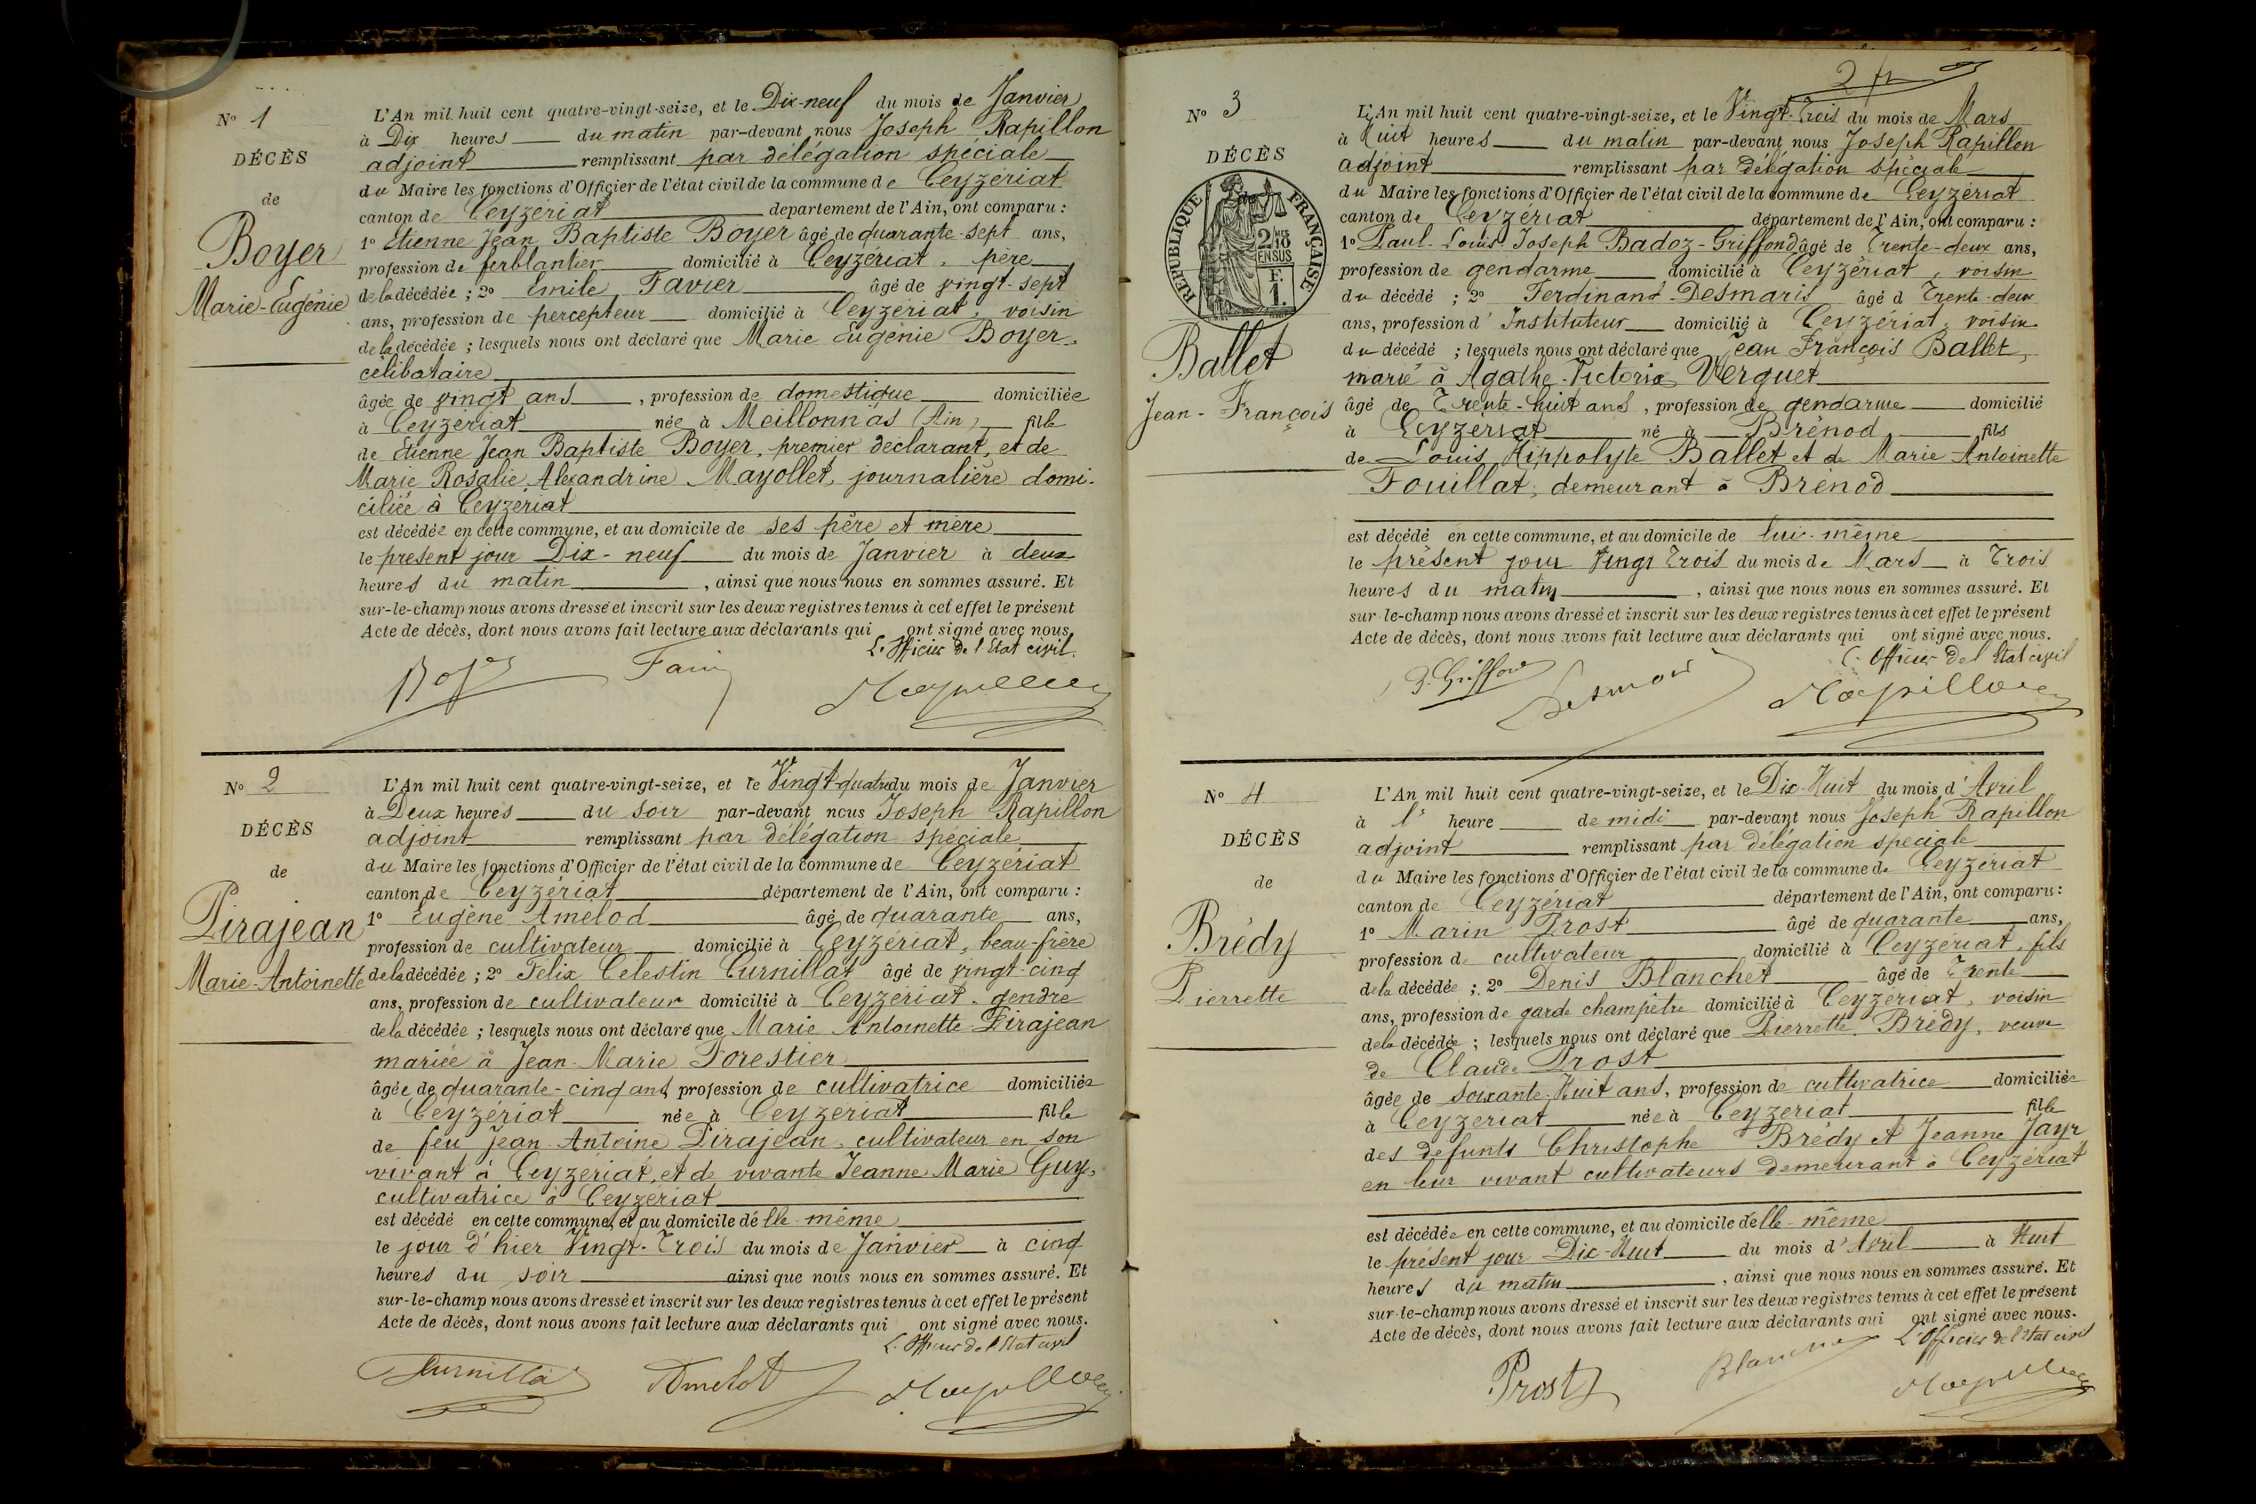 No 1
DÉCÈS
de
Boyer
Marie-Eugénie
L'An mil huit cent quatre-vingt-seize, et le Dix-neuf du mois de Janvier
à Dix heures du matin par-devant nous Joseph Rapillon
adjoint remplissant par délégation spéciale
du Maire les fonctions d'Officier de l'état civil de la commune de Ceyzériat
canton de Ceyzériat département de l'Ain, ont comparu :
1o Etienne Jean Baptiste Boyer âgé de quarante-sept ans,
profession de ferblantier domicilié à Ceyzériat, père
de la décédée ; 2o Emile Favier âgé de vingt-sept
ans, profession de percepteur domicilié à Ceyzériat, voisin
de la décédée ; lesquels nous ont déclaré que Marie Eugénie Boyer,
célibataire
âgée de vingt ans, profession de domestique domiciliée
à Ceyzériat née à Meillonnas (Ain) fille
de Etienne Jean Baptiste Boyer, premier déclarant, et de
Marie Rosalie Alexandrine Mayollet, journalière domi-
ciliée à Ceyzériat
est décédée en cette commune, et au domicile de ses père et mère
le présent jour Dix-neuf du mois de Janvier à deux
heures du matin, ainsi que nous nous en sommes assuré. Et
sur-le-champ nous avons dressé et inscrit sur les deux registres tenus à cet effet le présent
Acte de décès, dont nous avons fait lecture aux déclarants qui ont signé avec nous.
L'Officier de l'Etat civil.
No 2
DÉCÈS
de
Pirajean
Marie-Antoinette
L'An mil huit cent quatre-vingt-seize, et le Vingt-quatre du mois de Janvier
à Deux heures du soir par-devant nous Joseph Rapillon
adjoint remplissant par délégation spéciale
du Maire les fonctions d'Officier de l'état civil de la commune de Ceyzériat
canton de Ceyzériat département de l'Ain, ont comparu :
1o Eugène Amelod âgé de quarante ans,
profession de cultivateur domicilié à Ceyzériat, beau-frère
de la décédée ; 2o Félix Célestin Curnillat âgé de vingt-cinq
ans, profession de cultivateur domicilié à Ceyzériat, gendre
de la décédée ; lesquels nous ont déclaré que Marie Antoinette Pirajean
mariée à Jean-Marie Forestier
âgée de quarante-cinq ans, profession de cultivatrice domiciliée
à Ceyzériat née à Ceyzériat fille
de feu Jean Antoine Pirajean, cultivateur en son
vivant à Ceyzériat, et de vivante Jeanne Marie Guy,
cultivatrice à Ceyzériat
est décédé en cette commune, et au domicile d'elle-même
le jour d'hier Vingt-Trois du mois de Janvier à cinq
heures du soir ainsi que nous nous en sommes assuré. Et
sur-le-champ nous avons dressé et inscrit sur les deux registres tenus à cet effet le présent
Acte de décès, dont nous avons fait lecture aux déclarants qui ont signé avec nous.
L'Officier de l'Etat civil
Curnillat Amelot Rapillon
No 3
DÉCÈS
RÉPUBLIQUE FRANÇAISE
2 10 EN SUS
F. 1.
Ballet
Jean-François
L'An mil huit cent quatre-vingt-seize, et le Vingt-Trois du mois de Mars
à Huit heures du matin par-devant nous Joseph Rapillon
adjoint remplissant par délégation spéciale
du Maire les fonctions d'Officier de l'état civil de la commune de Ceyzériat
canton de Ceyzériat département de l'Ain, ont comparu :
1o Paul-Louis Joseph Badoz-Griffond âgé de Trente-deux ans,
profession de gendarme domicilié à Ceyzériat, voisin
du décédé ; 2o Ferdinand Desmaris âgé d Trente-deux
ans, profession d'Instituteur domicilié à Ceyzériat, voisin
du décédé ; lesquels nous ont déclaré que Jean François Ballet,
marié à Agathe-Victorix Verguet
âgé de Trente-huit ans, profession de gendarme domicilié
à Ceyzériat né à Brénod fils
de Louis Hippolyte Ballet et de Marie Antoinette
Fouillat, demeurant à Brénod
est décédé en cette commune, et au domicile de lui-même
le présent jour Vingt Trois du mois de Mars à Trois
heures du matin, ainsi que nous nous en sommes assuré. Et
sur-le-champ nous avons dressé et inscrit sur les deux registres tenus à cet effet le présent
Acte de décès, dont nous avons fait lecture aux déclarants qui ont signé avec nous.
L'Officier de l'Etat civil
Rapillon
No 4
DÉCÈS
de
Brédy
Pierrette
L'An mil huit cent quatre-vingt-seize, et le Dix-Huit du mois d'Avril
à heure de midi par-devant nous Joseph Rapillon
adjoint remplissant par délégation spéciale
du Maire les fonctions d'Officier de l'état civil de la commune de Ceyzériat
canton de Ceyzériat département de l'Ain, ont comparu :
1o Marin Prost âgé de quarante ans,
profession de cultivateur domicilié à Ceyzériat, fils
de la décédée ; 2o Denis Blanchet âgé de Trente
ans, profession de garde champêtre domicilié à Ceyzériat, voisin
de la décédée ; lesquels nous ont déclaré que Pierrette Brédy, veuve
de Claude Prost
âgée de soixante-Huit ans, profession de cultivatrice domiciliée
à Ceyzériat née à Ceyzériat fille
des défunts Christophe Brédy et Jeanne Jayr
en leur vivant cultivateurs demeurant à Ceyzériat
est décédée en cette commune, et au domicile d'elle-même
le présent jour Dix-Huit du mois d'Avril à Huit
heures du matin, ainsi que nous nous en sommes assuré. Et
sur-le-champ nous avons dressé et inscrit sur les deux registres tenus à cet effet le présent
Acte de décès, dont nous avons fait lecture aux déclarants qui ont signé avec nous.
L'Officier de l'Etat civil
Prost